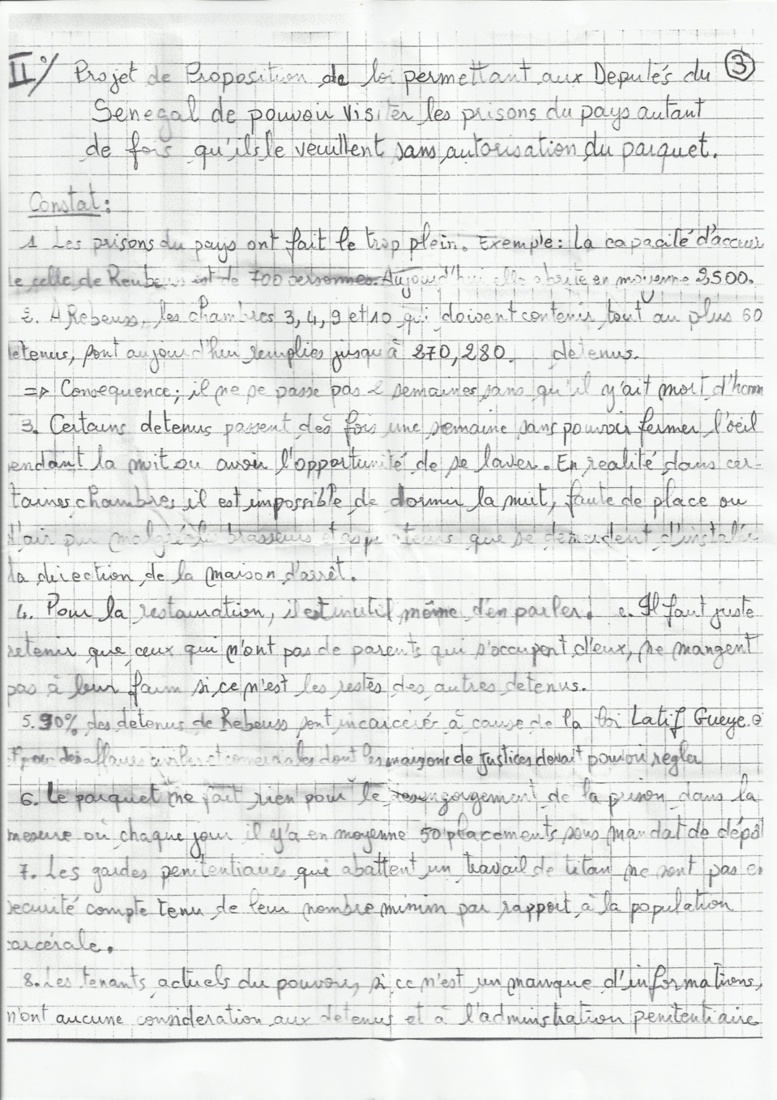 II°/ Projet de Proposition de loi permettant aux Deputés du ③
Senegal de pouvoir visiter les prisons du pays autant
de fois qu'ils le veuillent sans autorisation du parquet.
Constat:
1 Les prisons du pays ont fait le trop plein. Exemple: La capacité d'accueil
le celle de Reubeuss est de 700 personnes. Aujourd'hui elle abrite en moyenne 2500.
2. A Rebeuss, les chambres 3, 4, 9 et 10 qui doivent contenir tout au plus 50
letenus, sont aujourd'hui remplies jusqu'à 270, 280 detenus.
=> Consequence; il ne se passe pas 2 semaines sans qu'il y'ait mort d'homm
3. Certains detenus passent des fois une semaine sans pouvoir fermer l'oeil
endant la nuit ou avoir l'opportunité de se laver. En realité dans cer-
taines chambres il est impossible de dormir la nuit, faute de place ou
d'air pur malgré le brasseurs et aspirateurs que se demandent d'installer
la direction de la maison d'arrêt.
4. Pour la restauration, il est inutil même d'en parler. Il faut juste
retenir que ceux qui n'ont pas de parents qui s'occupent d'eux, ne mangent
pas à leur faim si ce n'est les restes des autres detenus.
5. 90% des detenus de Rebeuss sont incarcérés à cause de la loi Latif Gueye
pour des affaires civiles et comerciales dont les maisons de justices devait pouvoir regla
6. Le parquet ne fait rien pour le desengorgement de la prison dans la
mesure où chaque jour il y'a en moyenne 50 placements sous mandat de dépôt
7. Les gardes penitentiaires qui abattent un travail de titan ne sont pas en
securité compte tenu de leur nombre minim par rapport à la population
carcérale.
8. Les tenants actuels du pouvoir, si ce n'est un manque d'informations,
n'ont aucune consideration aux detenus et à l'administration penitentiaire